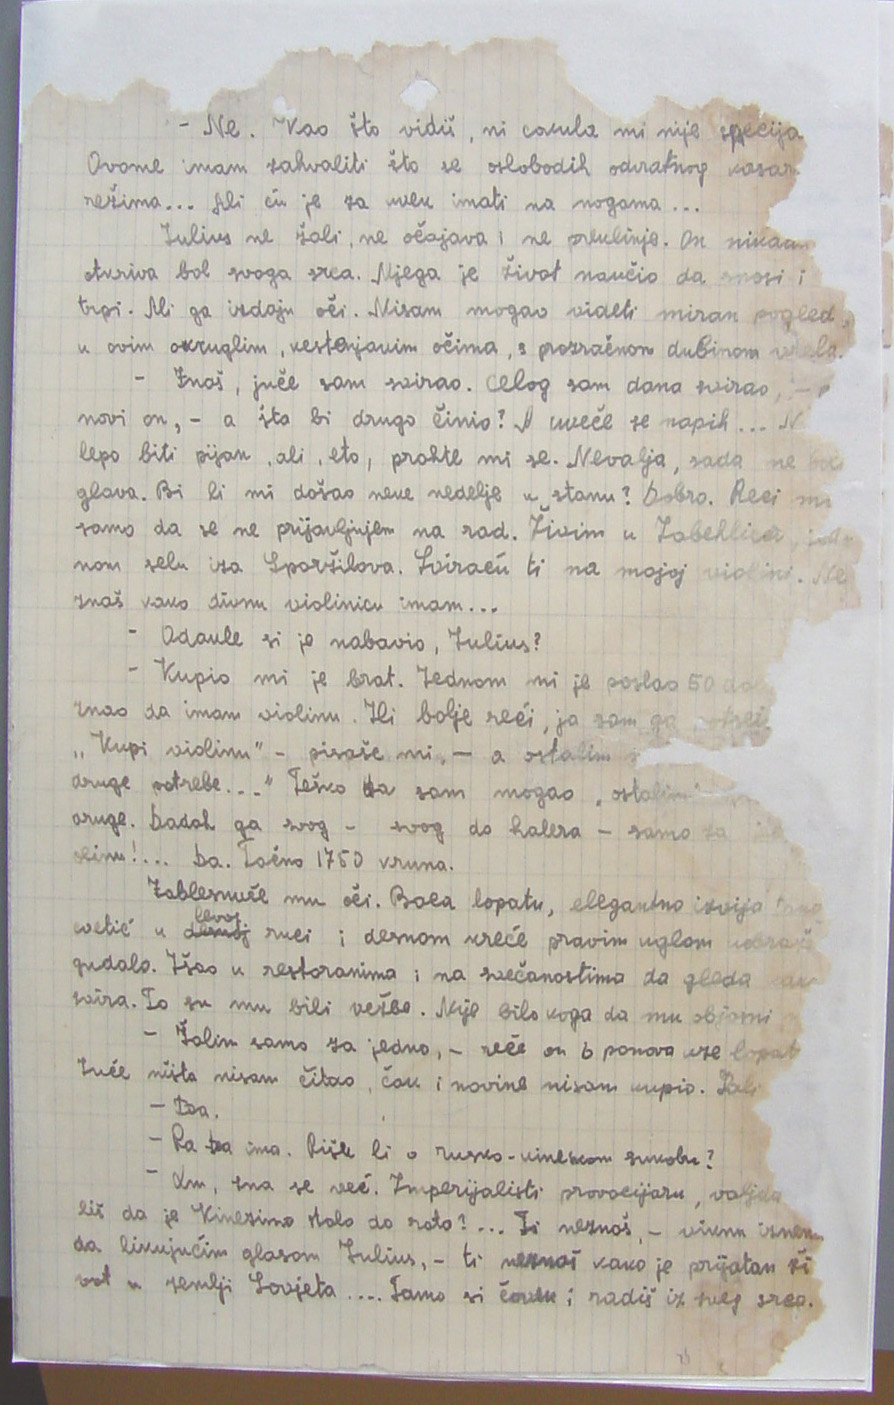 - Ne. Kao što vidiš, ni cokula mi nije specija
Ovome imam zahvaliti što se oslobodih odvratnog kasar
režima... Ali ću je za uvek imati na nogama...
Julius ne žali, ne očajava i ne preklinje. On nikam
otkriva bol svoga srca. Njega je život naučio da snosi i
trpi. Ali ga izdaju oči. Nisam mogao videti miran pogled,
u ovim okruglim, kestenjavim očima, s prozračnom dubinom
- Znaš, juče sam svirao. Celog sam dana svirao, -
novi on, - a šta bi drugo činio? A uveče se napih... N
lepo biti pijan, ali, eto, prohte mi se. Nevalja, sada ne bol
glava. Bi li mi došao neke nedelje u stanu? Dobro. Reci mi
samo da se ne prijavljujem na rad. Živim u Zabehlice, jed
nom selu iza Sporžilova. Sviraću ti na mojoj violini. Ne
znaš kako divnu violinicu imam...
- Odakle si je nabavio, Julius?
- Kupio mi je brat. Jednom mi je poslao 50 dol
znao da imam violinu. Ili bolje reći, ja sam ga
„Kupi violinu" - pisaše mi, - a ostalim
druge potrebe..." Teško da sam mogao „ostalim
druge. Dadoh ga svog - svog do halera - samo za
linu!... Da. Tačno 1750 kruna.
Zablesnuše mu oči. Baca lopatu, elegantno izvija
cvetić u desnoj levoj ruci i desnom kreće pravim uglom
gudalo. Išao u restoranima i na svečanostima da gleda
svira. To su mu bili vežbe. Nije bilo koga da mu objasni
- Žalim samo za jedno, - reče on i ponova uze lopat
Juče ništa nisam čitao, čak i novine nisam kupio.
- Daa.
- Pa šta ima. Piše li o rusko-kineskom sukobu?
- Hm, zna se već. Imperijalisti provociraju, valjda
liš da je Kinezima stalo do rata?... Ti neznaš, - viknu iznen
da likujućim glasom Julius, - ti neznaš kako je prijatan ži
vot u zemlji Sovjeta.... Tamo si čovek i radiš iz sveg srca.